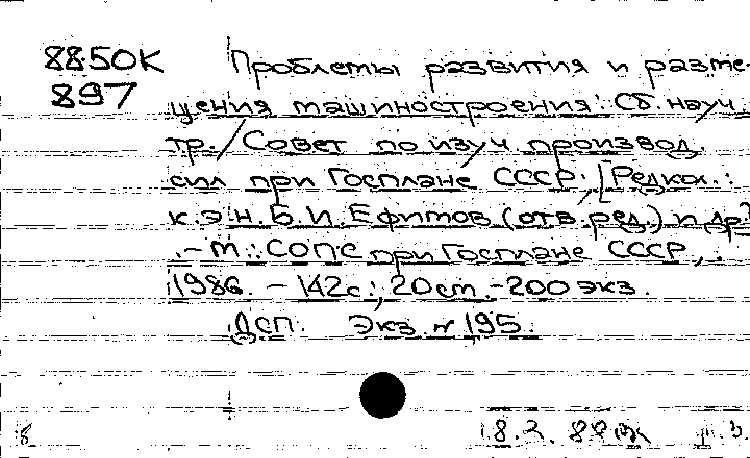 8850К Проблемы развития и разме-
897 щения машиностроения: Сб. науч.
тр./Совет по изуч производ.
сил при Госплане СССР; [Редкол.:
к.э.н. Б.И. Ефимов (отв. ред.) и др.]
.-М.: СОПС при Госплане СССР,
1986. - 142с.; 20см.-200 экз.
ДСП. Экз. № 195.